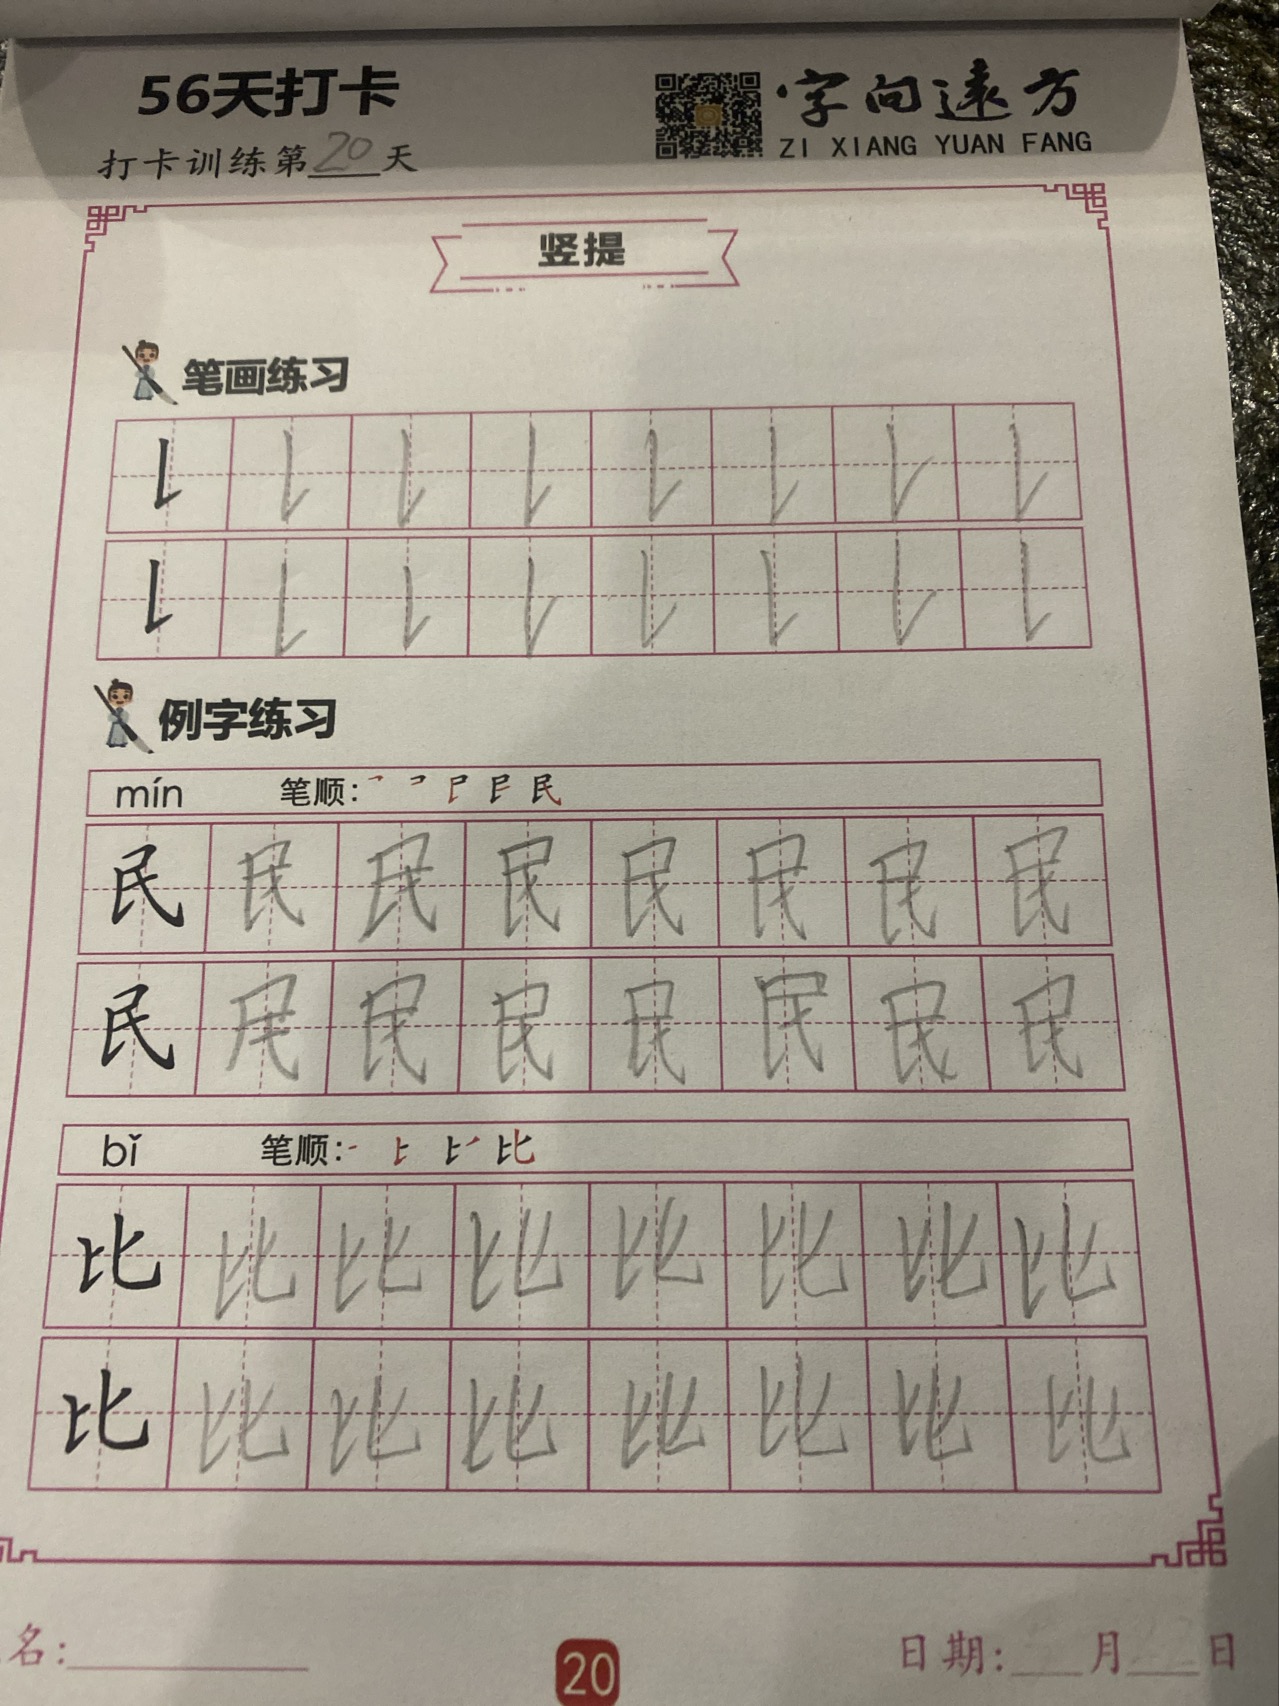 56天打卡
字向遠方
ZI XIANG YUAN FANG
打卡训练第20天
竖提
笔画练习
例字练习
mín 笔顺:
民 民 民 民 民 民 民 民
民 民 民 民 民 民 民 民
bǐ 笔顺:
比 比 比 比 比 比 比 比
比 比 比 比 比 比 比 比
名:
20
日期: 月 日